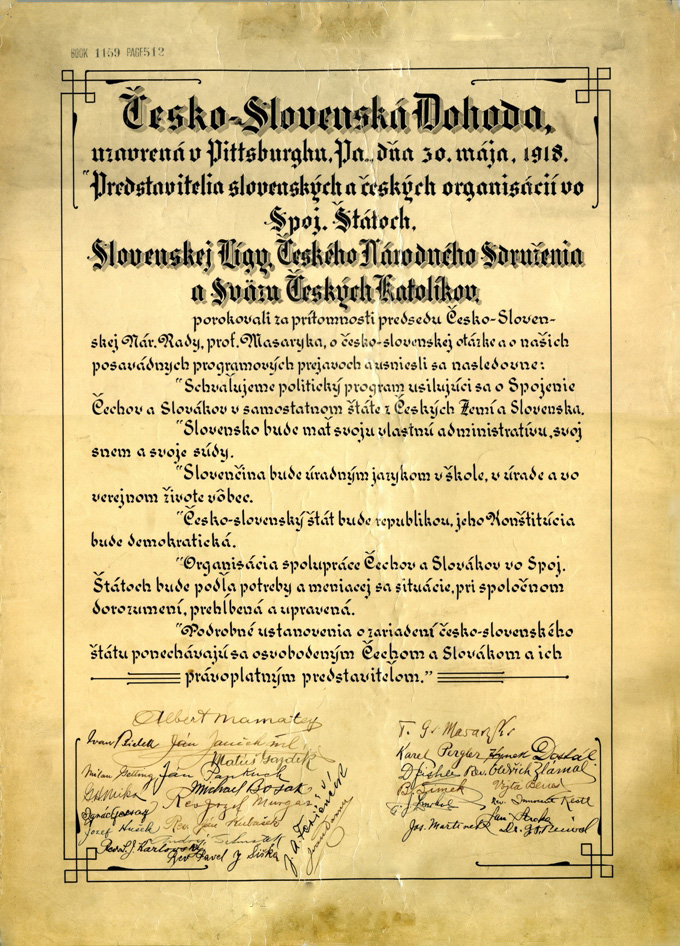 BOOK 1159 PAGE 512
Česko-Slovenská Dohoda,
uzavrená v Pittsburghu, Pa., dňa 30. mája, 1918.
"Predstavitelia slovenských a českých organisácií vo
Spoj. Štátoch,
Slovenskej Ligy, Českého Národného Sdruženia
a Sväzu Českých Katolíkov,
porokovali za prítomnosti predsedu Česko-Sloven-
skej Nár. Rady, prof. Masaryka, o česko-slovenskej otázke a o našich
posavádnych programových prejavoch a usniesli sa nasledovne:
"Schvaľujeme politický program usilujúci sa o Spojenie
Čechov a Slovákov v samostatnom štáte z Českých Zemí a Slovenska.
"Slovensko bude mať svoju vlastnú administratívu, svoj
snem a svoje súdy.
"Slovenčina bude úradným jazykom v škole, v úrade a vo
verejnom živote vôbec.
"Česko-slovenský štát bude republikou, jeho Konštitúcia
bude demokratická.
"Organisácia spolupráce Čechov a Slovákov vo Spoj.
Štátoch bude podľa potreby a meniacej sa situácie, pri spoločnom
dorozumení, prehĺbená a upravená.
"Podrobné ustanovenia o zariadení česko-slovenského
štátu ponechávajú sa osvobodeným Čechom a Slovákom a ich
právoplatným predstaviteľom."
Albert Mamatey
Ivan Bielek Ján Janček ml.
Matúš Gazdík
Milan Getting Ján Pankuch
Michail Bosak
Rev. Jozef Murgaš
Ignác Gessay
Jozef Hušek Rev. Ján Kubašek
Rev. J. Karlowsky
Rev. Pavel J Šiška
J. A. Ferienčík
T. G. Masaryk
Karel Pergler Hynek Dostál
Rev. Oldřich Zlámal
B. Simek Vojta Beneš
Rev. Innocent Kestl
Jos. Martinek